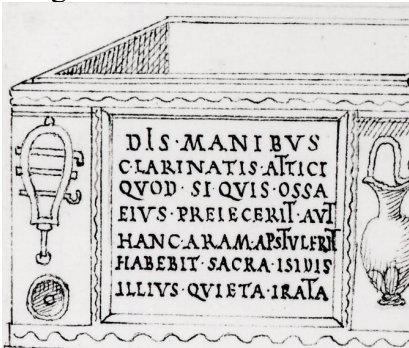 DIS·MANIBVS
C·LARINATIS·ATTICI
QVOD·SI·QVIS·OSSA
EIVS·PREIECERIT·AVT
HANC·ARAM·APSTVLERIT
HABEBIT·SACRA·ISIDIS
ILLIVS·QVIETA·IRATA